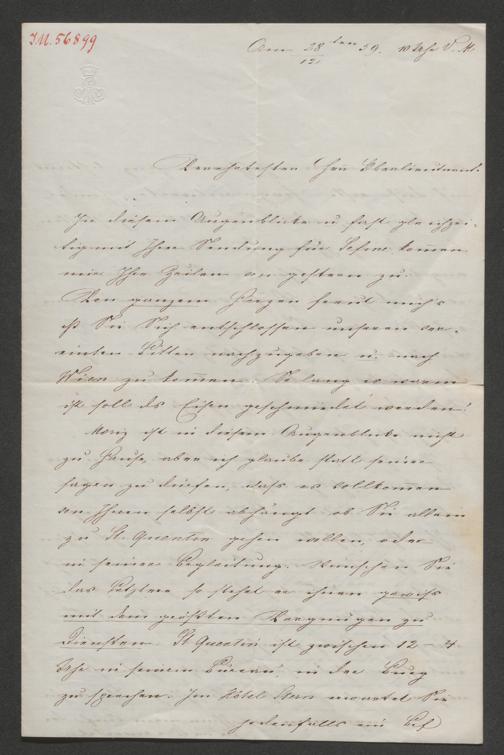 I.N. 56899
Am 28ten 59. 10 Uhr V. M.
12.
Verehrtester Herr Oberlieutenant.
In diesem Augenblicke u fast gleichzei-
tig mit Ihrer Sendung für kommen
mir Ihre Zeilen von gestern zu.
Von ganzem Herzen freut mich's
dß Sie Sich entschlossen unseren ver-
einten Bitten nachzugeben u. nach
Wien zu kommen. So lang es warm
ist soll das Eisen geschmiedet werden!
Moriz ist in diesem Augenblicke nicht
zu Hause, aber ich glaube statt seiner
sagen zu dürfen, dass es vollkommen
von Ihnen selbst abhängt ob Sie allein
zu St. Quentin gehen wollen, oder
in seiner Begleitung. Wünschen Sie
das Letztere so stehet er Ihnen gewiss
mit dem größten Vergnügen zu
Diensten. St Quentin ist zwischen 12 – 4
Uhr in seinem Bureau in der Burg
zu sprechen. Im Hôtel wartet Sie
jedenfalls ein